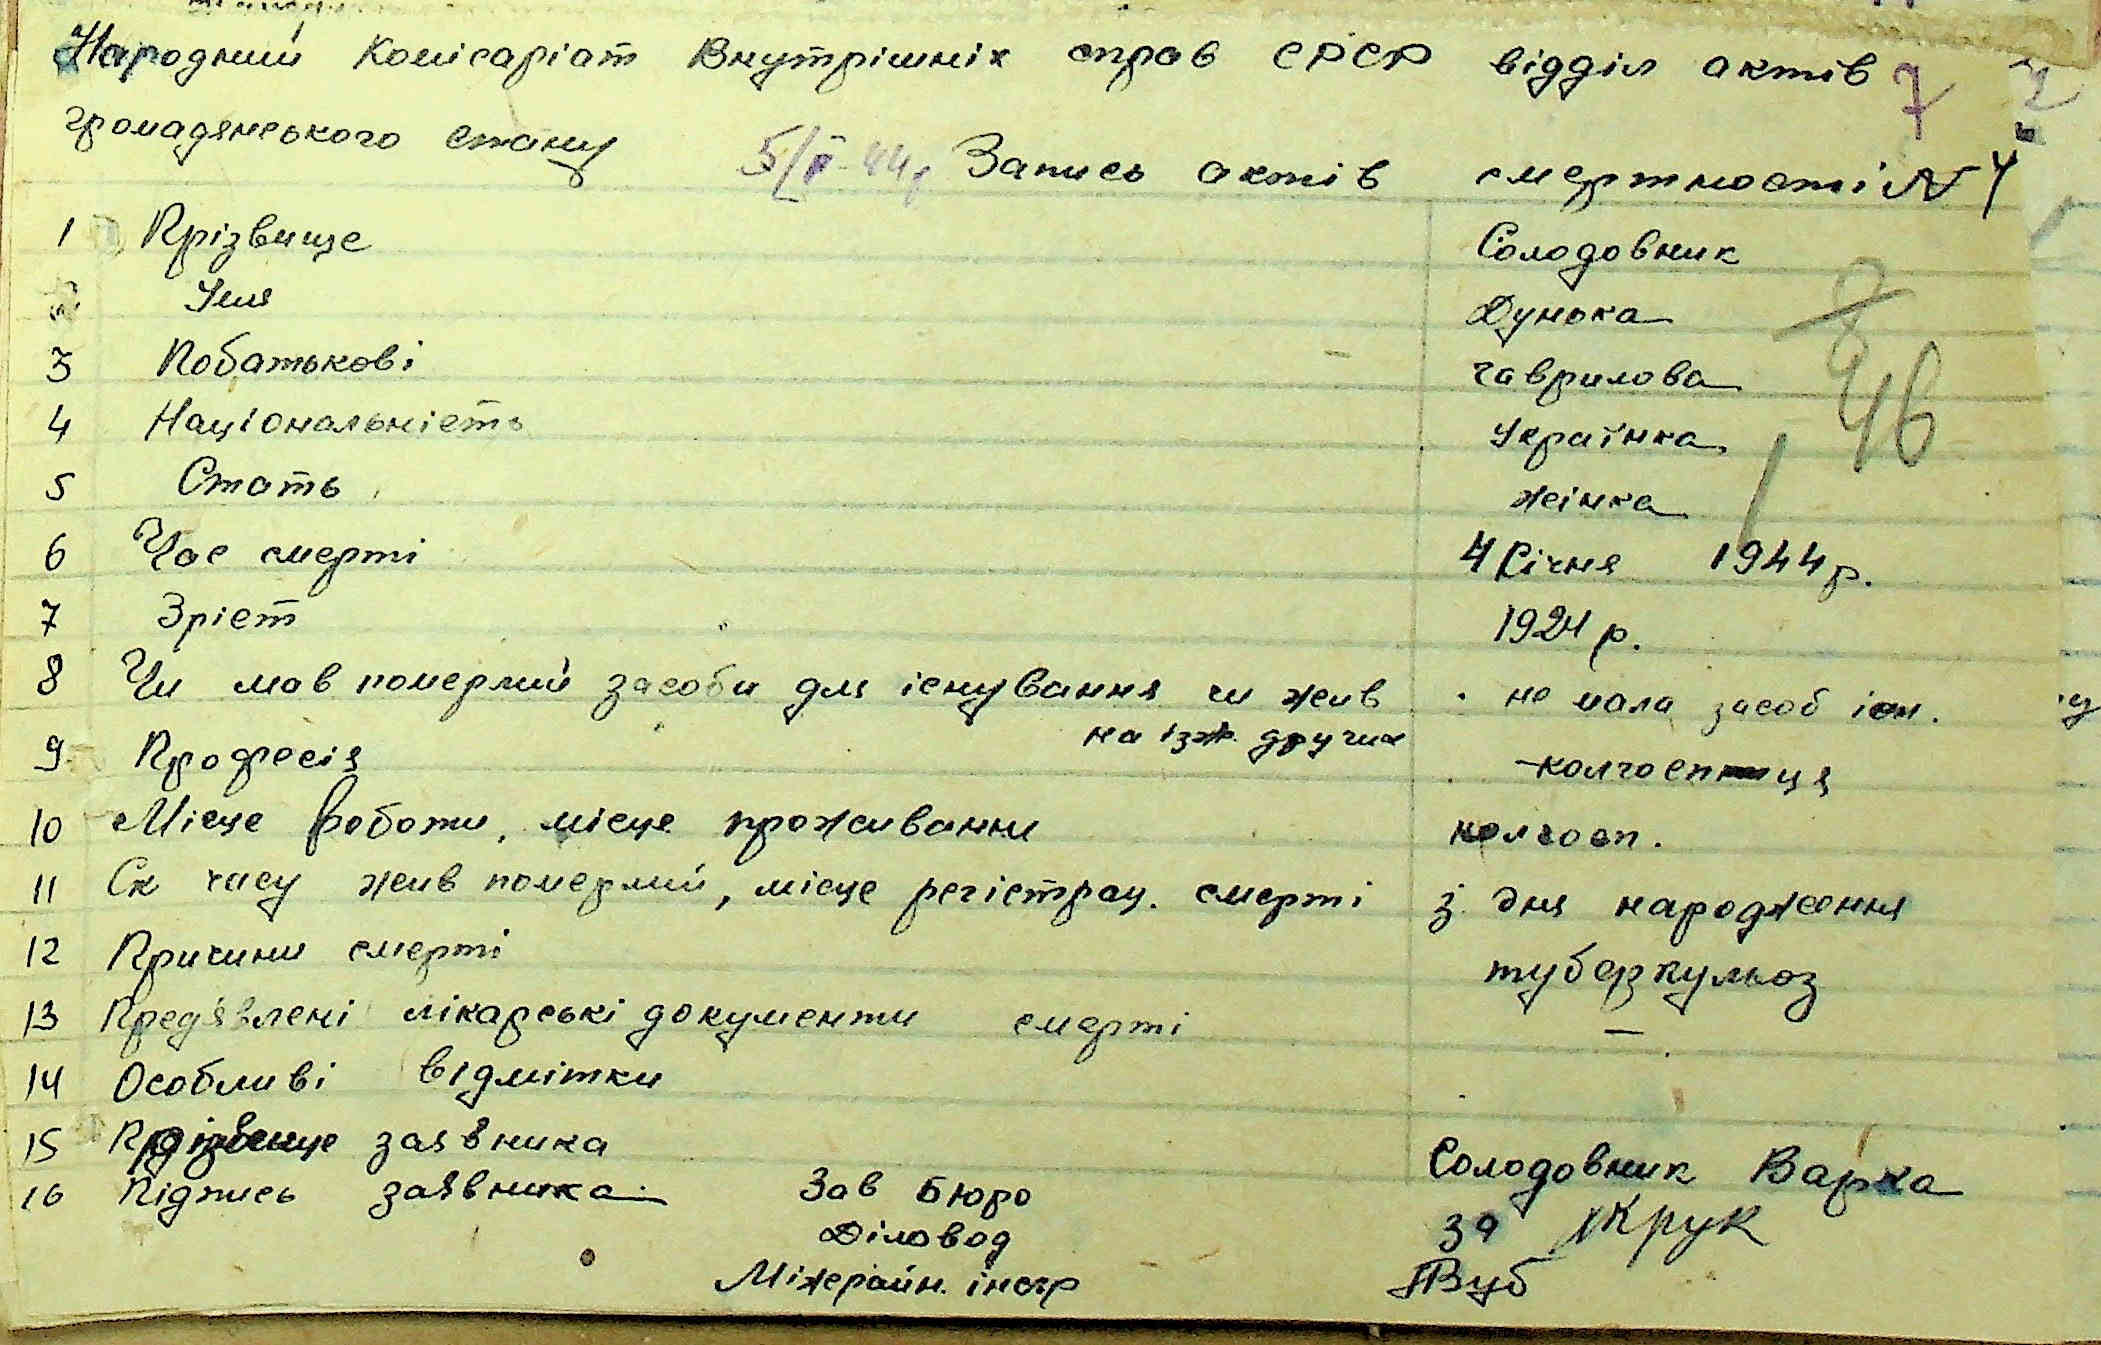 Народний Комісаріат Внутрішніх справ СРСР відділ актів 7
громадянського стану 5/I-44р Запись актів смертності № 4
1 Прізвище Солодовник
2 Імя Дунька
3 Побатькові гаврилова
4 Національність Українка
46
5 Стать жінка
6 Час смерті 4 Січня 1944 р.
7 Зріст 1921 р.
8 Чи мав померлий засоби для існування чи жив не мала засоб існ.
на ізж. других
9 Професія колгоспниця
10 Місце роботи, місце проживання колгосп.
11 Ск часу жив померлий, місце регістрац. смерті з дня народження
12 Причини смерті туберкульоз
13 Предявлені лікарські документи смерті —
14 Особливі відмітки
15 Прізвище заявника Солодовник Варка
16 Підпись заявника Зав Бюро за Крук
Діловод
Міжрайн. інстр